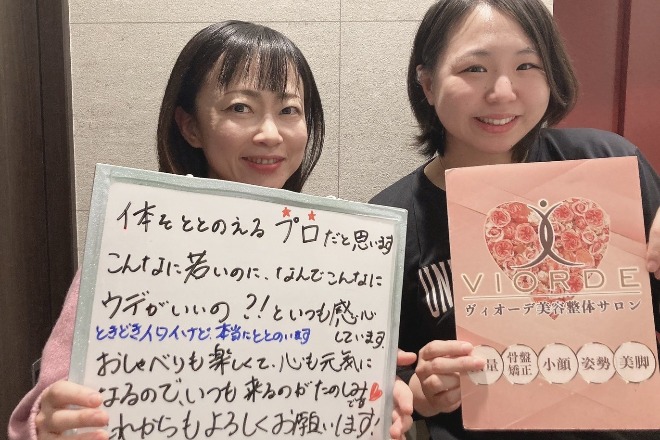 体をととのえるプロだと思います
こんなに若いのに、なんでこんなに
ウデがいいの?!といつも感心
しています。
ときどきイタイけど、本当にととのいます
おしゃべりも楽しくて、心も元気に
なるので、いつも来るのがたのしみ
です
れからもよろしくお願いします!
UN
VIORDE
ヴィオーデ美容整体サロン
量
骨盤
矯正
小顔
姿勢
美脚